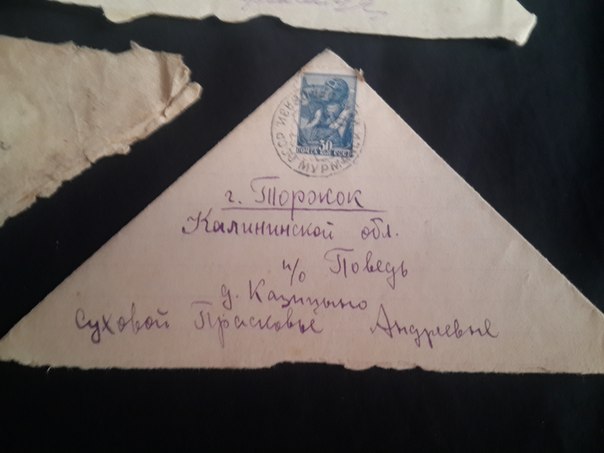 30
ПОЧТА СССР
МУРМ
г. Торжок
Калининской обл.
п/о Поведь
д. Казицыно
Суховой Прасковье Андреевне